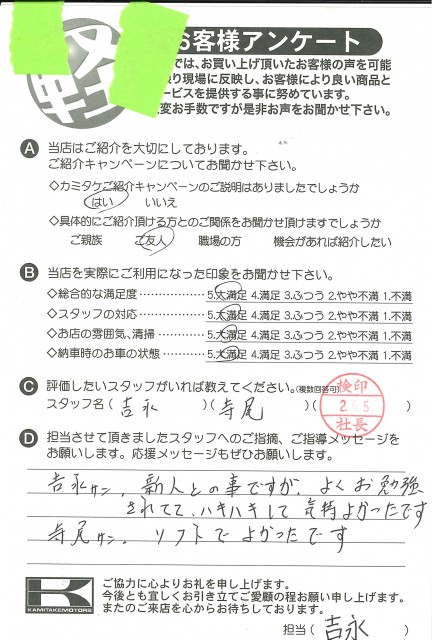 お客様アンケート
では、お買い上げ頂いたお客様の声を可能
り現場に反映し、お客様により良い商品と
ービスを提供する事に努めています。
変お手数ですが是非お声をお聞かせ下さい。
A 当店はご紹介を大切にしております。
ご紹介キャンペーンについてお聞かせ下さい。
◇カミタケご紹介キャンペーンのご説明はありましたでしょうか
はい いいえ
◇具体的にご紹介頂ける方とのご関係をお聞かせ頂けますでしょうか
ご親族 ご友人 職場の方 機会があれば紹介したい
B 当店を実際にご利用になった印象をお聞かせ下さい。
◇総合的な満足度 ……………… 5.大満足 4.満足 3.ふつう 2.やや不満 1.不満
◇スタッフの対応 ……………… 5.大満足 4.満足 3.ふつう 2.やや不満 1.不満
◇お店の雰囲気、清掃 ………… 5.大満足 4.満足 3.ふつう 2.やや不満 1.不満
◇納車時のお車の状態 ………… 5.大満足 4.満足 3.ふつう 2.やや不満 1.不満
C 評価したいスタッフがいれば教えてください。(複数回答可)
スタッフ名( 吉永 )( 寺尾 )( )
検印
2 6.5
社長
D 担当させて頂きましたスタッフへのご指摘、ご指導メッセージを
お願いします。応援メッセージもぜひお願いします。
吉永サン、新人との事ですが、よくお勉強
されてて、ハキハキして気持よかったです
寺尾サン、ソフトでよかったです
K
KAMITAKEMOTORS
ご協力に心よりお礼を申し上げます。
今後とも宜しくお引き立てご愛顧の程お願い申し上げます。
またのご来店を心からお待ちしております。
担当( 吉永 )